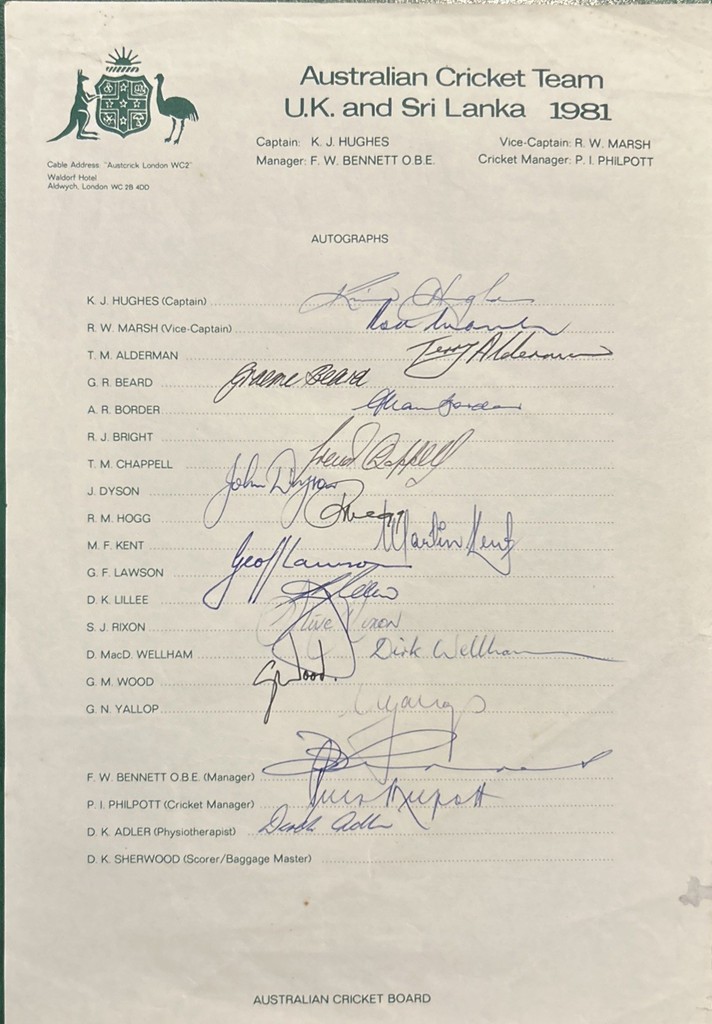 Australian Cricket Team
U.K. and Sri Lanka 1981
Captain: K. J. HUGHES Vice-Captain: R. W. MARSH
Manager: F. W. BENNETT O.B.E. Cricket Manager: P. I. PHILPOTT
Cable Address: "Austcrick London WC2"
Waldorf Hotel
Aldwych, London WC 2B 4DD
AUTOGRAPHS
K. J. HUGHES (Captain) Kim Hughes
R. W. MARSH (Vice-Captain) Rod Marsh
T. M. ALDERMAN Terry Alderman
G. R. BEARD Graeme Beard
A. R. BORDER Allan Border
R. J. BRIGHT
T. M. CHAPPELL Trevor Chappell
J. DYSON John Dyson
R. M. HOGG R Hogg
M. F. KENT Martin Kent
G. F. LAWSON Geoff Lawson
D. K. LILLEE DK Lillee
S. J. RIXON Steve Rixon
D. MacD. WELLHAM Dirk Wellham
G. M. WOOD G Wood
G. N. YALLOP
F. W. BENNETT O.B.E. (Manager)
P. I. PHILPOTT (Cricket Manager) Peter Philpott
D. K. ADLER (Physiotherapist) Derek Adler
D. K. SHERWOOD (Scorer/Baggage Master)
AUSTRALIAN CRICKET BOARD